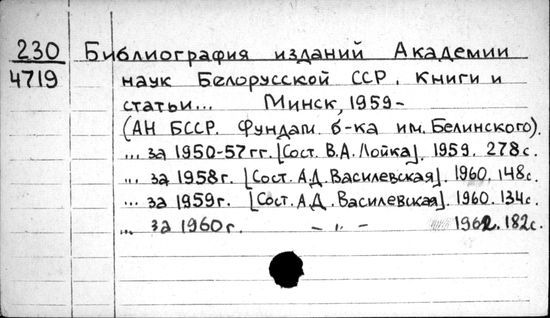 230 Библиография изданий Академии
4719 наук Белорусской ССР. Книги и
статьи... Минск, 1959-
(АН БССР. Фундам. б-ка им. Белинского).
... за 1950-57гг. [Сост. В.А. Лойка]. 1959. 278с.
... за 1958г. [Сост. А.Д. Василевская]. 1960. 148с.
... за 1959г. [Сост. А.Д. Василевская]. 1960. 134с.
... за 1960г. – " – 1962. 182с.